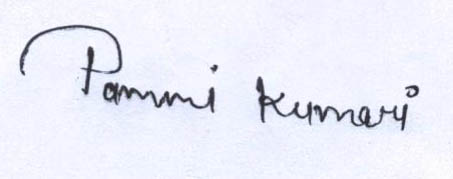 Pammi Kumari